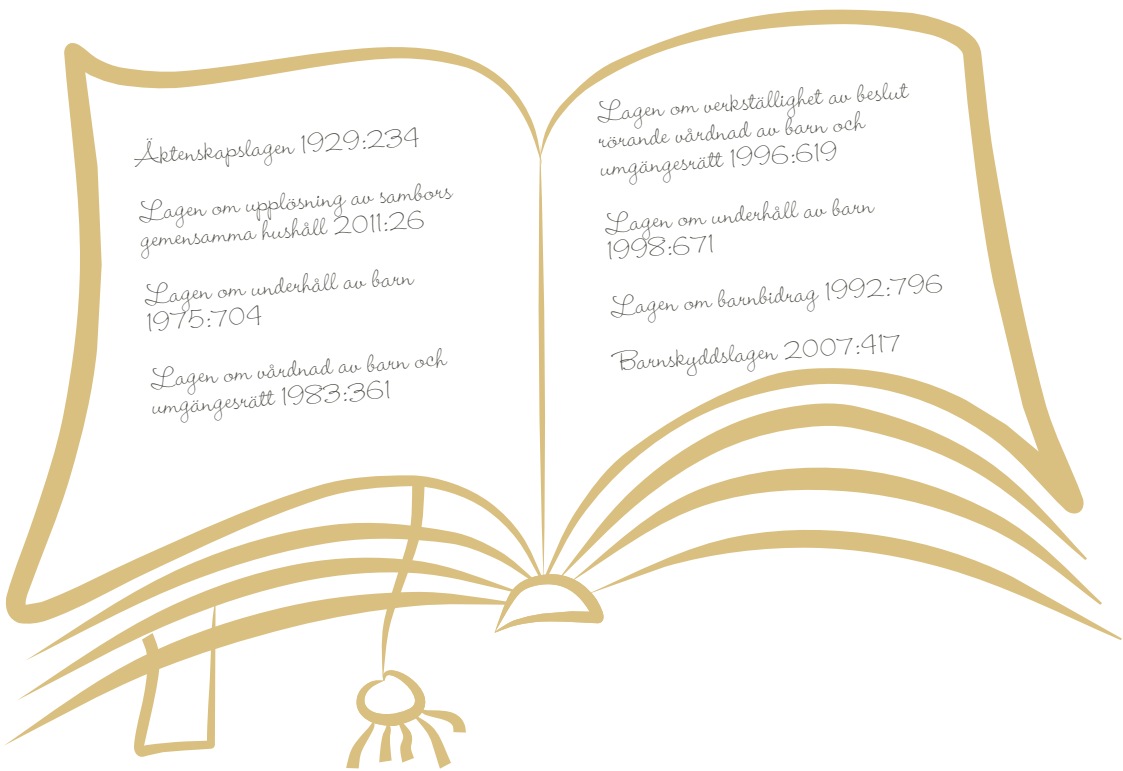 Äktenskapslagen 1929:234
Lagen om upplösning av sambors
gemensamma hushåll 2011:26
Lagen om underhåll av barn
1975:704
Lagen om vårdnad av barn och
umgängesrätt 1983:361
Lagen om verkställighet av beslut
rörande vårdnad av barn och
umgängesrätt 1996:619
Lagen om underhåll av barn
1998:671
Lagen om barnbidrag 1992:796
Barnskyddslagen 2007:417